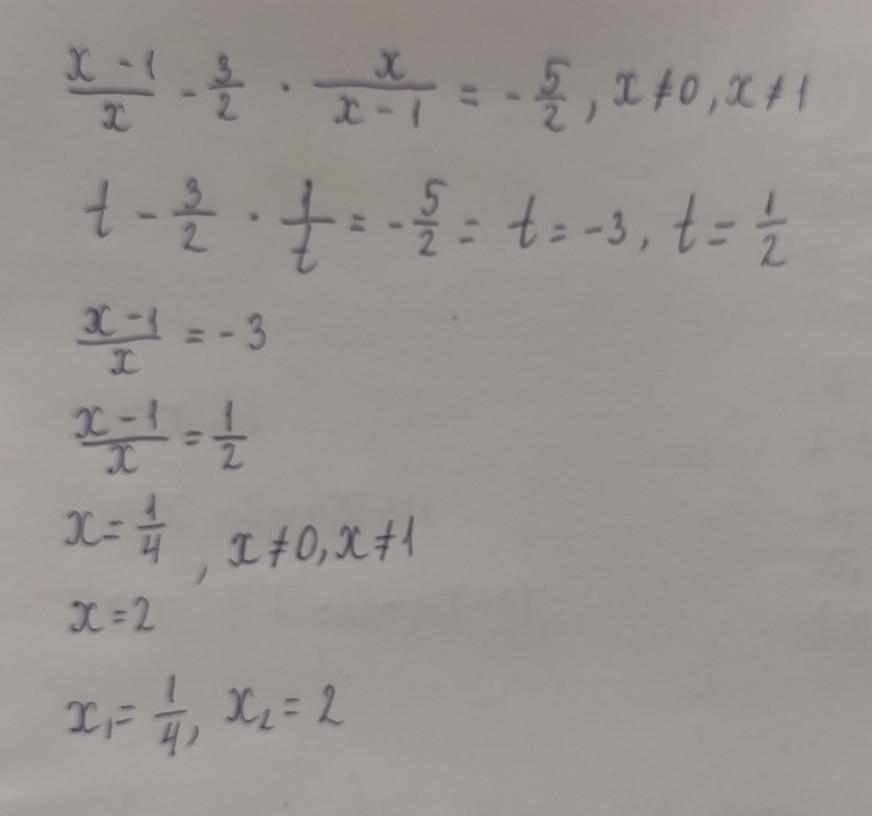 (x - 1)/x - 3/2 · x/(x - 1) = - 5/2, x ≠ 0, x ≠ 1
t - 3/2 · 1/t = - 5/2 = t = -3, t = 1/2
(x - 1)/x = - 3
(x - 1)/x = 1/2
x = 1/4 , x ≠ 0, x ≠ 1
x = 2
x₁ = 1/4, x₂ = 2